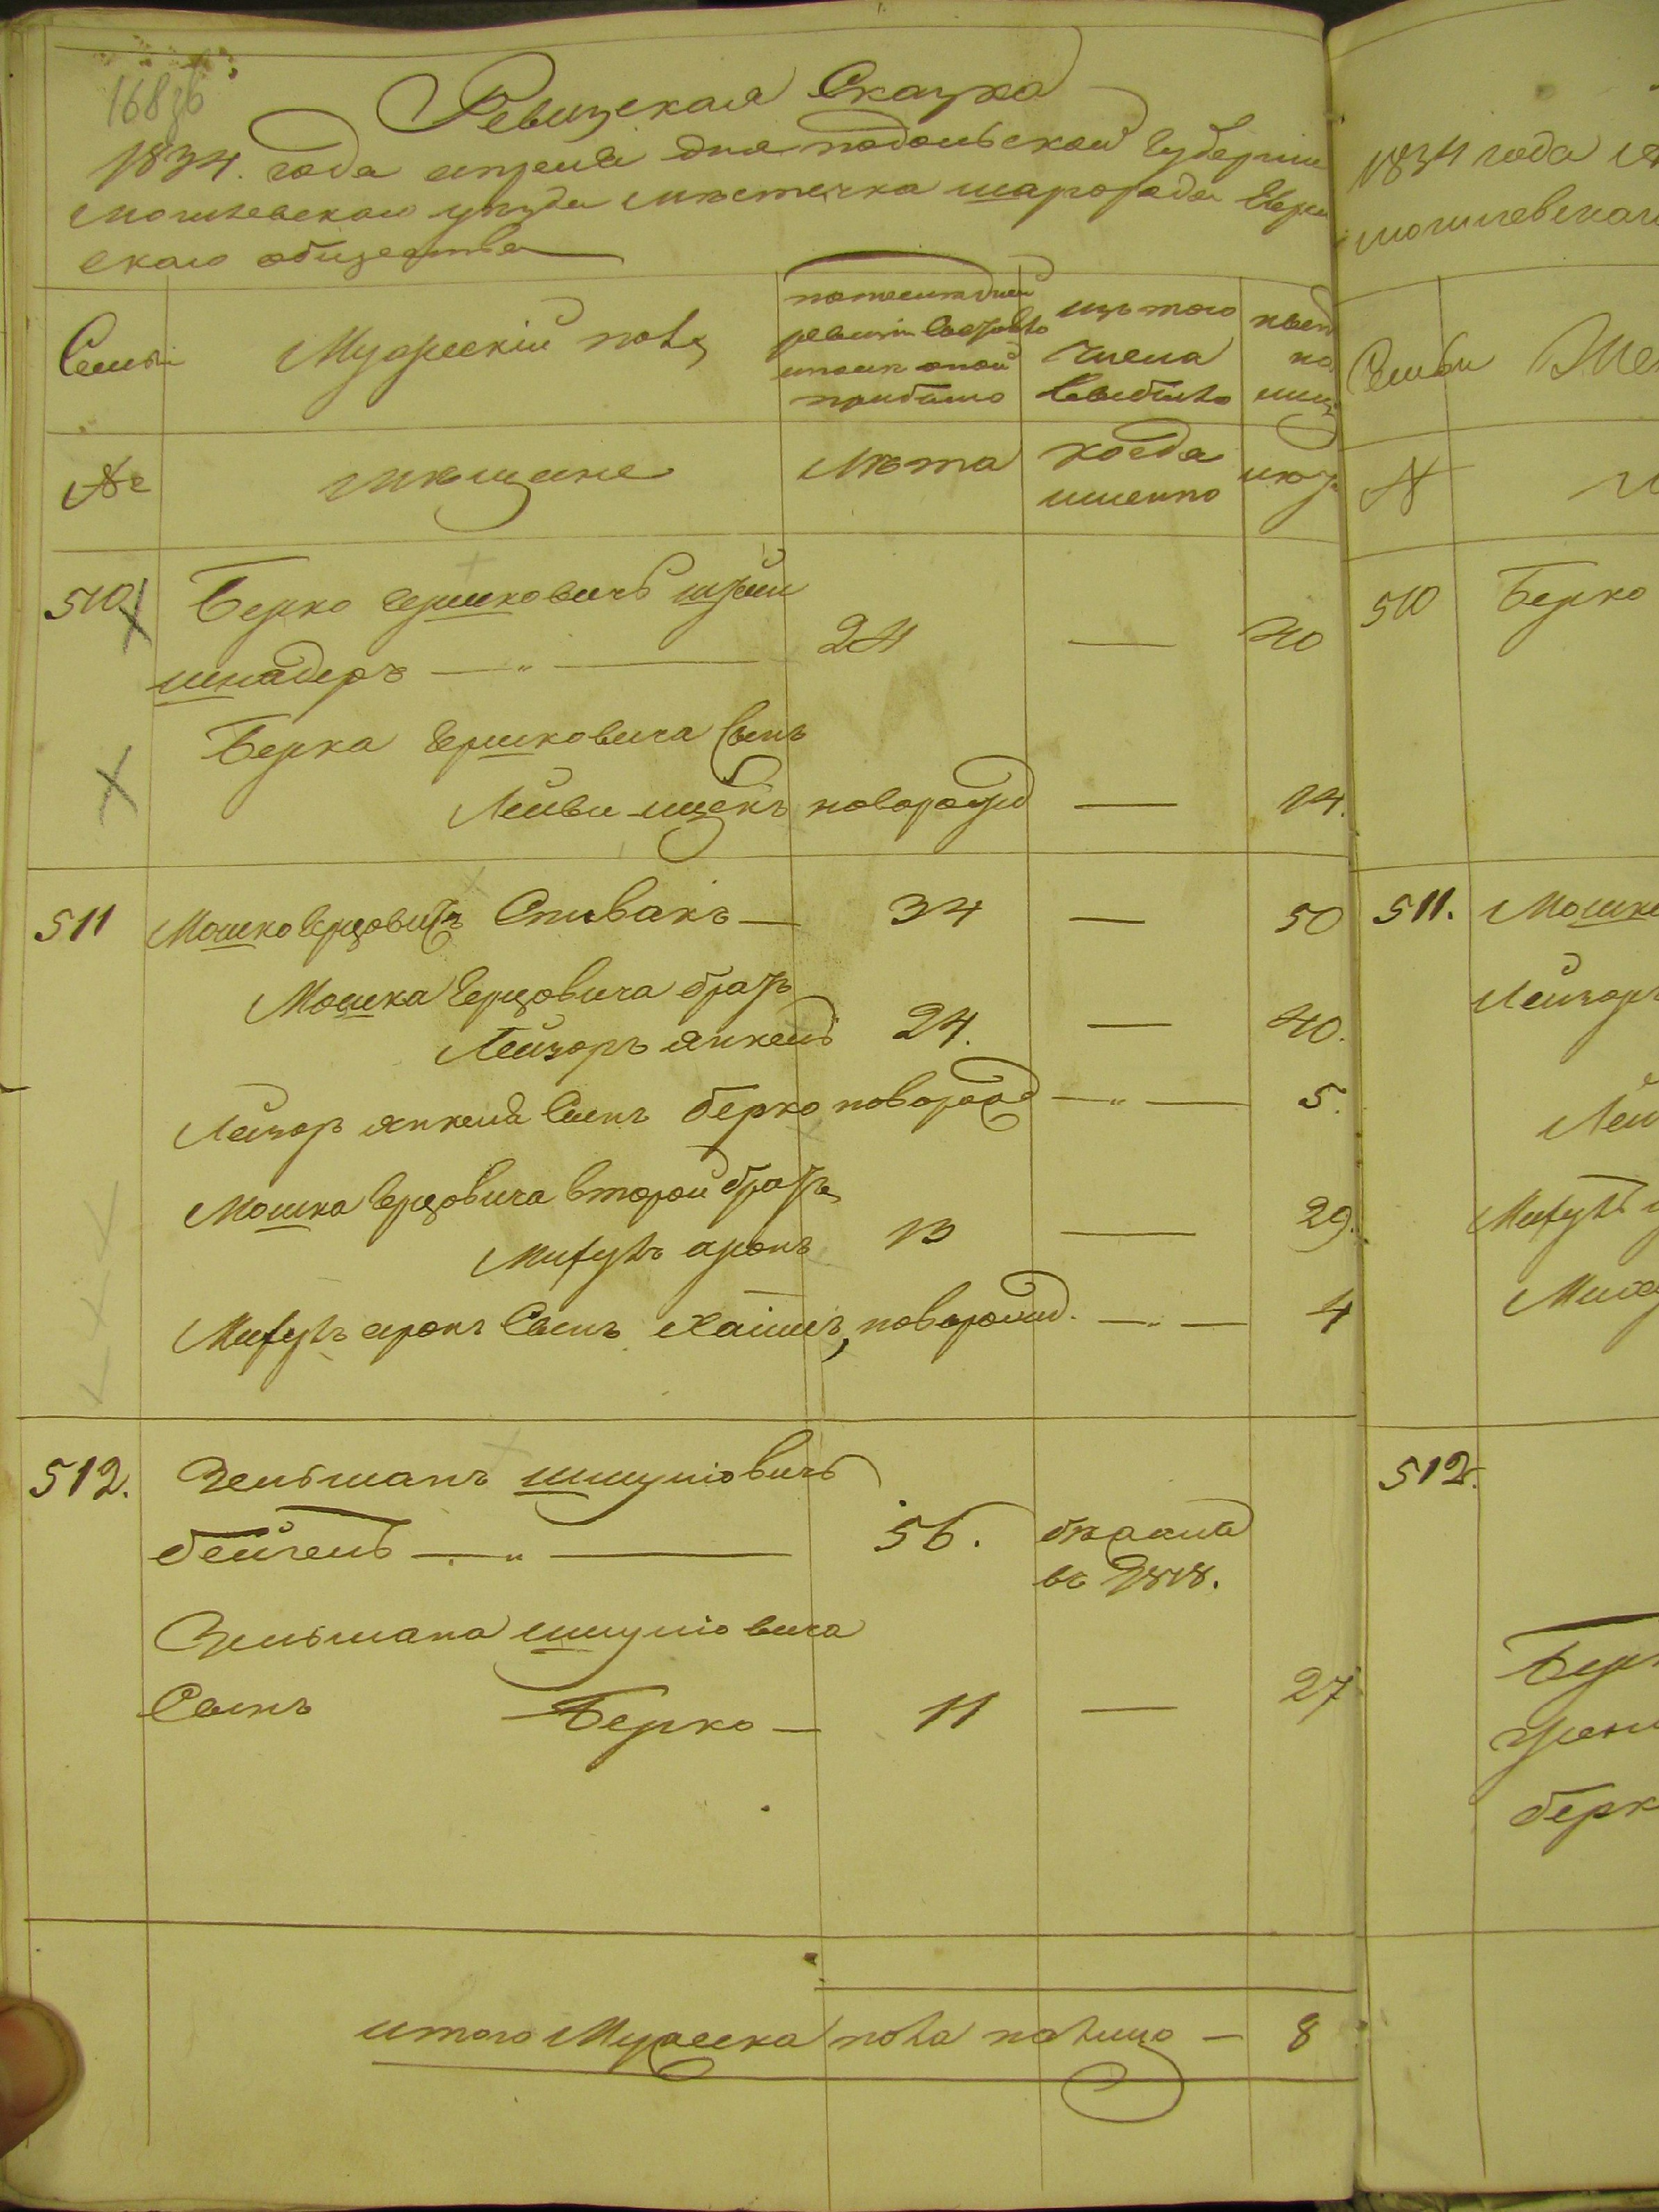 168 зв
Ревизская Сказка
1834. года апреля дня подольской Губернии
могилевскаго уезда местечка шаргорода Евреи
скаго общества
Семьи
Мужескій полъ
ревизіи состояло
и после оной
прибыло
изъ того
числа
выбыло
ныне
на
лиц
№
мещане
Лета
когда
именно
лета
510
Берко Гершковичъ
шнадеръ — „ —
24
—
40
Берка Гершковича Сынъ
Лейви ицекъ новорожд — 14.
511
Мошко Герцовичъ Спивакъ — 34 — 50
Мошка Герцовича братъ
Лейзоръ янкель 24. — 40.
Лейзор янкеля Сынъ берко новорожд — „ — 5.
Мошка Герцовича второй братъ
Михуль аронъ 13 — 29.
Михуль аронъ Сынъ Хаимъ, новорожд. — „ — 4
512.
Зельманъ шмулiовичъ
бейгель — „ — 56.
въ 1818.
Зельмана шмулiовича
Сынъ Берко — 11 — 27
итого Мужеска пола налицо — 8
1834 года
могилевскаго
Семьи
№
510 Берко
511. Мошка
Лейзоръ
512.